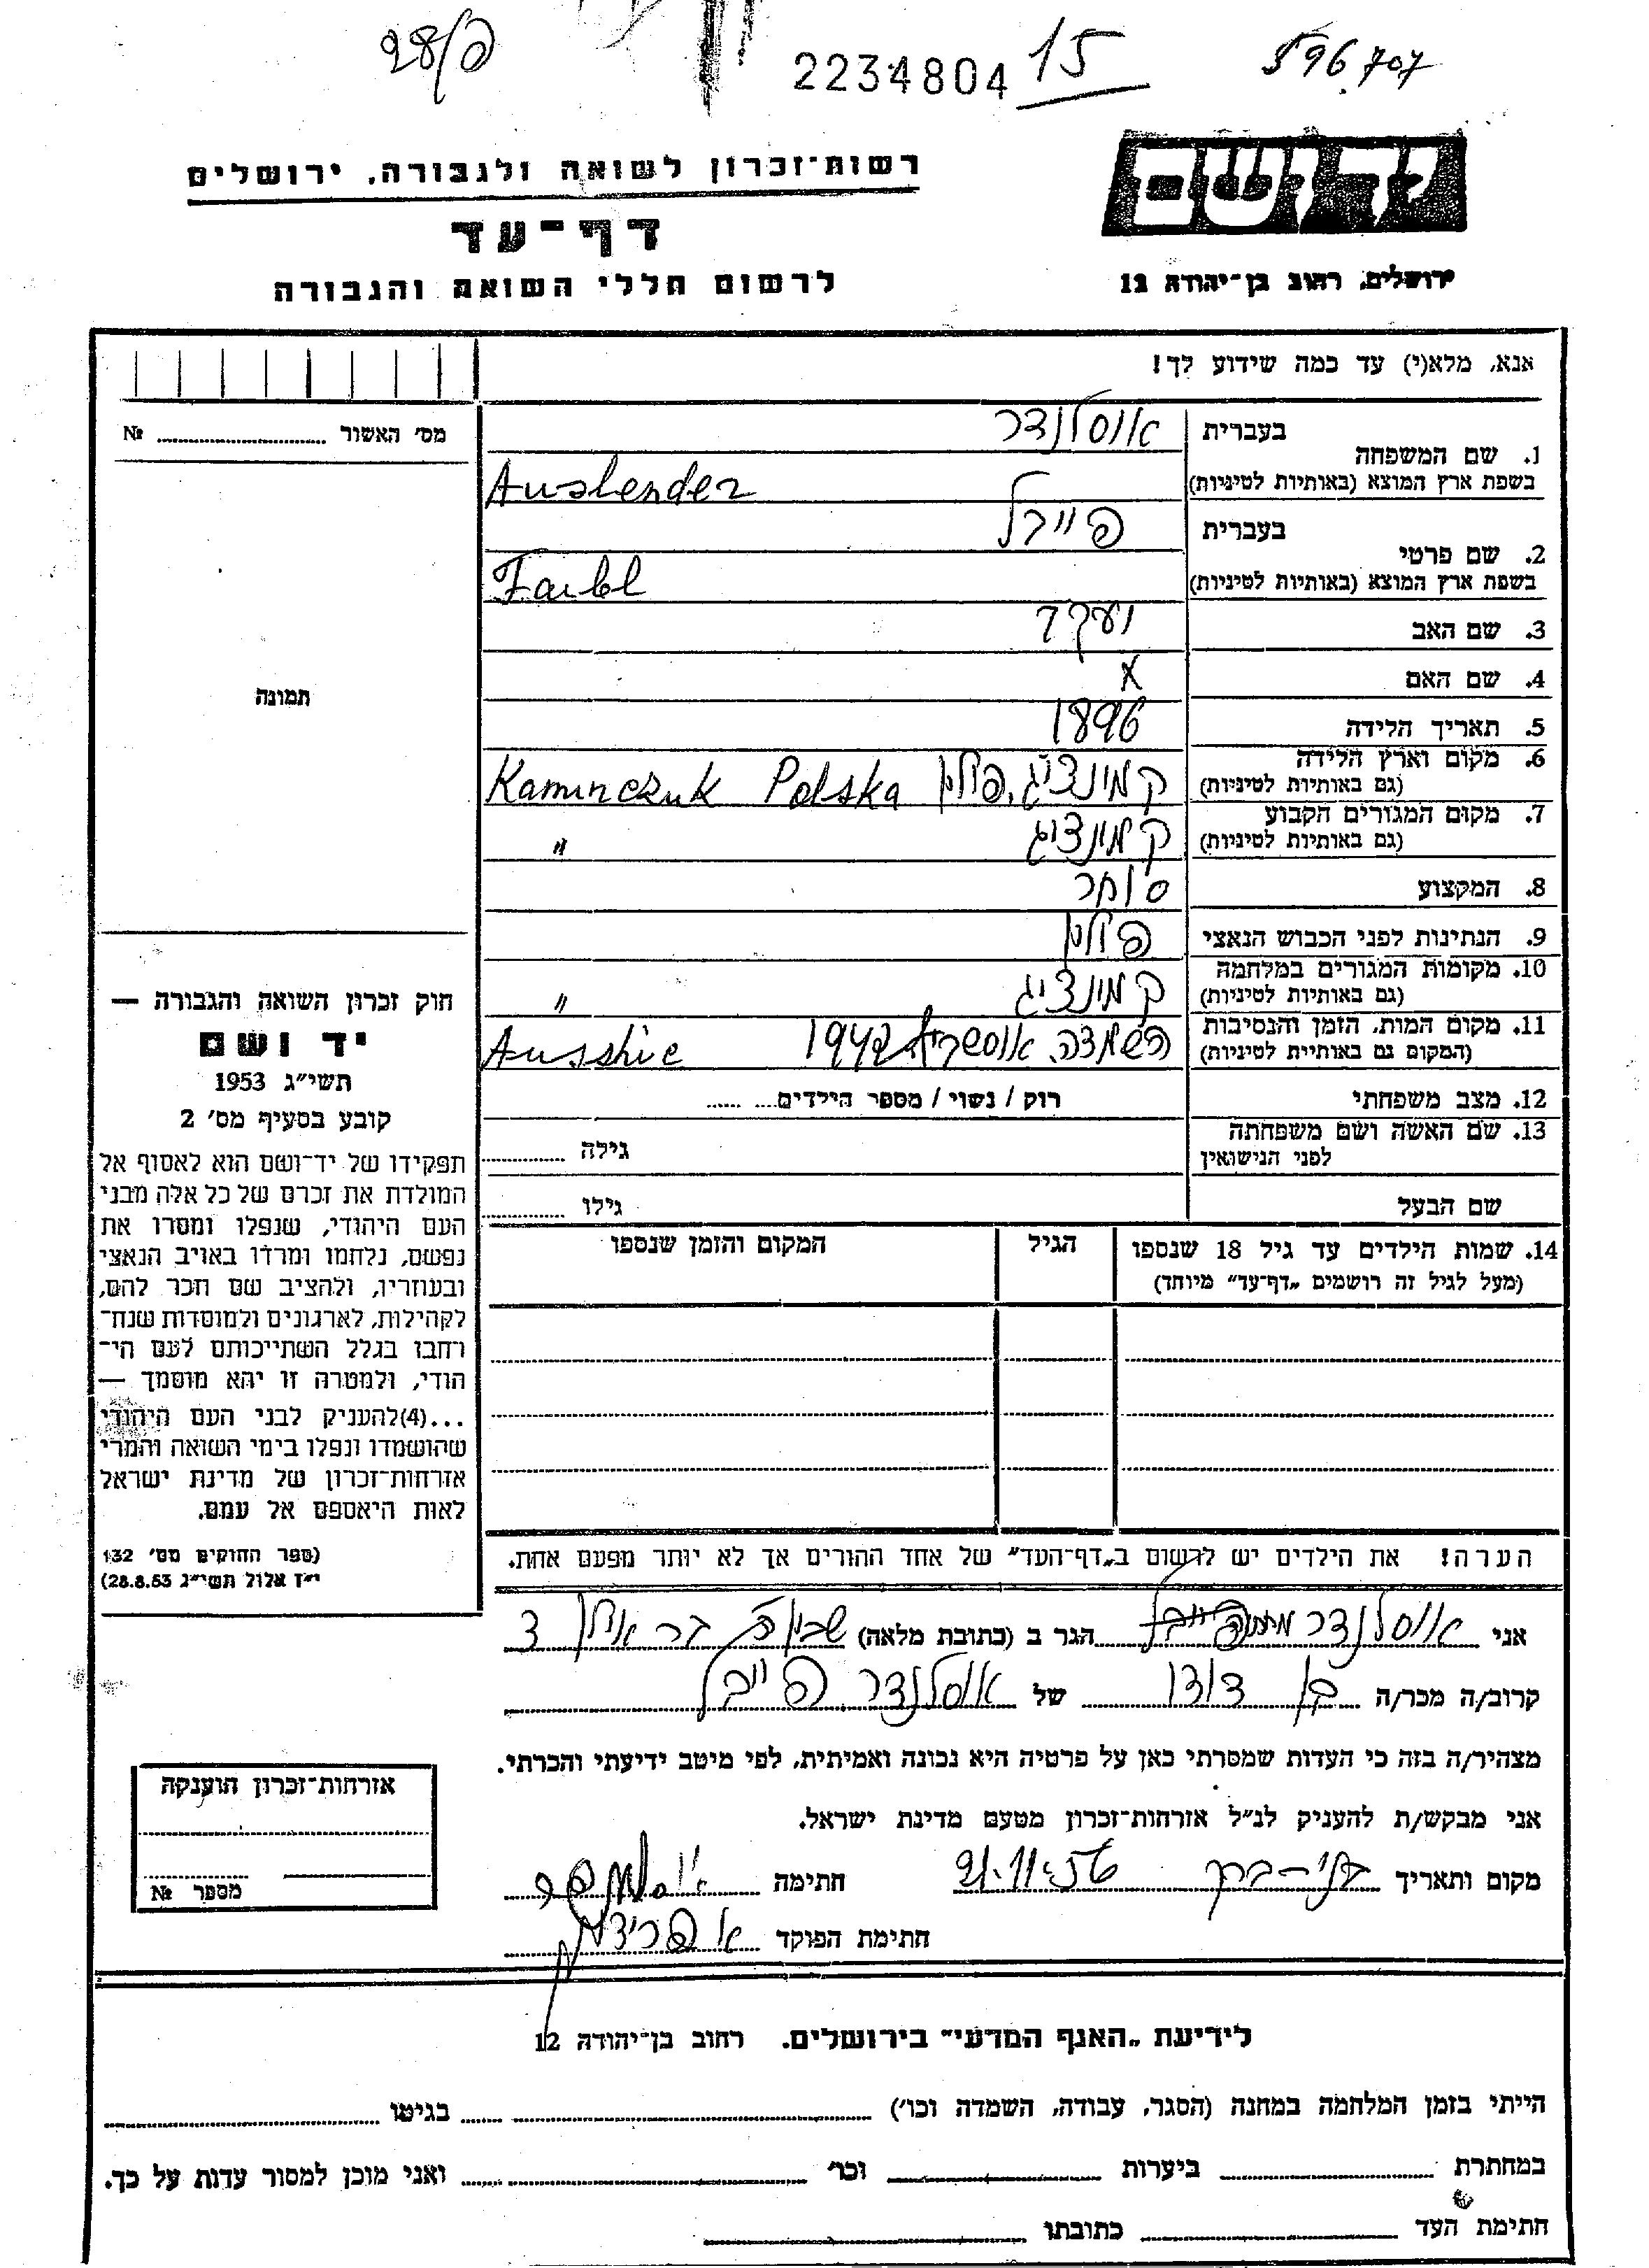 28/פ
2234804 15
596.707
יד ושם
ירושלים, רחוב בן־יהודה 12
רשות־זכרון לשואה ולגבורה, ירושלים
דף־עד
לרשום חללי השואה והגבורה
אנא, מלא(י) עד כמה שידוע לך!
מס' האשור № 
תמונה
1. שם המשפחה
בעברית אוסלנדר
בשפת ארץ המוצא (באותיות לטיניות) Auslender
2. שם פרטי
בעברית פייבל
בשפת ארץ המוצא (באותיות לטיניות) Faibl
3. שם האב יעקב
4. שם האם x
5. תאריך הלידה 1896
6. מקום וארץ הלידה קמינציג, פולין Kaminczuk Polska
(גם באותיות לטיניות)
7. מקום המגורים הקבוע קמינציג "
(גם באותיות לטיניות)
8. המקצוע סוחר
9. הנתינות לפני הכבוש הנאצי פולין
10. מקומות המגורים במלחמה קמינציג "
(גם באותיות לטיניות)
11. מקום המות, הזמן והנסיבות השמדה. 1942
(המקום גם באותיות לטיניות)
12. מצב משפחתי רוק / נשוי / מספר הילדים
13. שם האשה ושם משפחתה
לפני הנישואין גילה
שם הבעל גילו
14. שמות הילדים עד גיל 18 שנספו
(מעל לגיל זה רושמים „דף־עד" מיוחד)
הגיל
המקום והזמן שנספו
חוק זכרון השואה והגבורה —
יד ושם
תשי״ג 1953
קובע בסעיף מס' 2
תפקידו של יד־ושם הוא לאסוף אל
המולדת את זכרם של כל אלה מבני
העם היהודי, שנפלו ומסרו את
נפשם, נלחמו ומרדו באויב הנאצי
ובעוזריו, ולהציב שם וזכר להם,
לקהילות, לארגונים ולמוסדות שנח־
רחבו בגלל השתייכותם לעם הי־
הודי, ולמטרה זו יהא מוסמך —
...(4)להעניק לבני העם היהודי
שהושמדו ונפלו בימי השואה והמרי
אזרחות־זכרון של מדינת ישראל
לאות היאספם אל עמם.
(ספר החוקים מס' 132
י״ז אלול תשי״ג 28.8.53)
הערה! את הילדים יש לרשום ב„דף־העד" של אחד ההורים אך לא יותר מפעם אחת.
אני אוסלנדר הגר ב (כתובת מלאה)
קרוב/ה מכר/ה בן דודו של אוסלנדר פייבל
מצהיר/ה בזה כי העדות שמסרתי כאן על פרטיה היא נכונה ואמיתית, לפי מיטב ידיעתי והכרתי.
אני מבקש/ת להעניק לנ״ל אזרחות־זכרון מטעם מדינת ישראל.
מקום ותאריך בני-ברק 21.11.56 חתימה
חתימת הפוקד
אזרחות־זכרון הוענקה
מספר №
לידיעת „האגף המדעי" בירושלים. רחוב בן־יהודה 12
הייתי בזמן המלחמה במחנה (הסגר, עבודה, השמדה וכו') בגיטו
במחתרת ביערות וכו' ואני מוכן למסור עדות על כך.
חתימת העד כתובתו